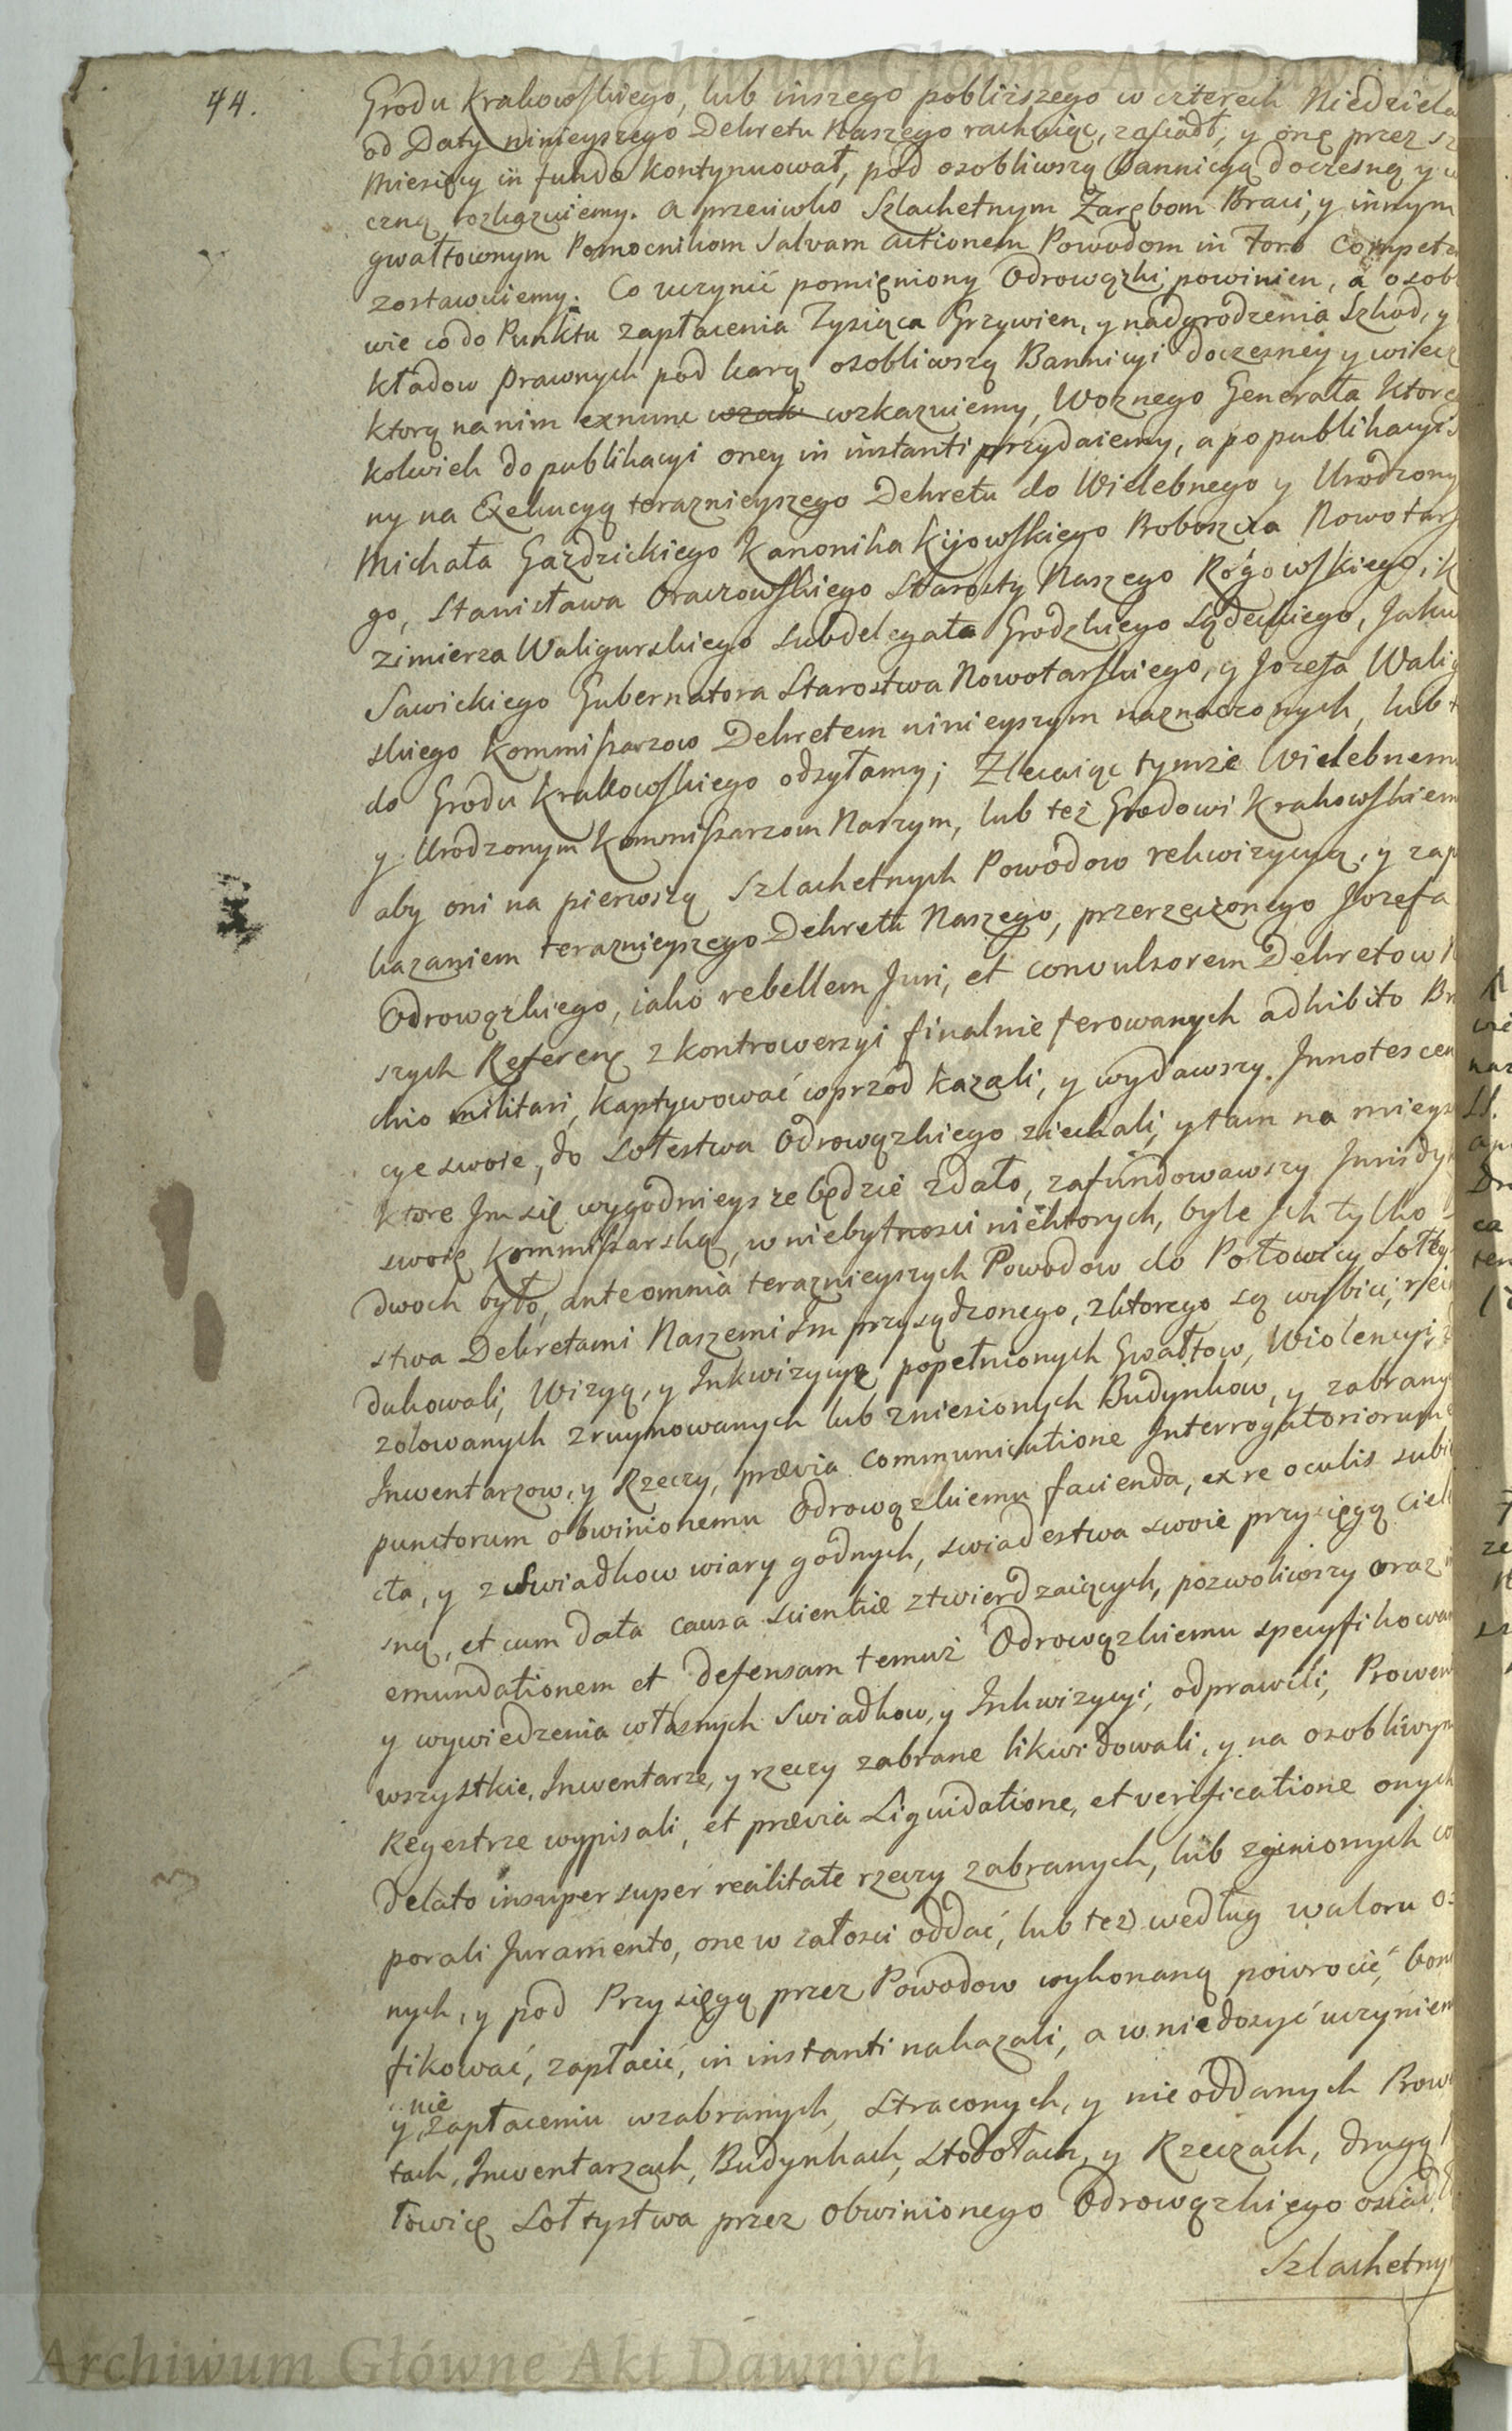 Archiwum Główne Akt Dawnych
44.
Grodu Krakowskiego, lub inszego pobliższego w czterech Niedziela
od Daty ninieyszego Dekretu Naszego rachuiąc, zasiadł, y onę przez sz
Miesięcy in fundo kontynuował, pod osobliwszą Bannicyą doczesną y w
czną rozkazuiemy. a przeciwko Szlachetnym Zarębom Braci, y innym
gwałtownym Pomocnikom salvam actionem Powodom in Foro Compete
zostawuiemy. Co uczynić pomięniony Odrowązki powinien, a osob
wie co do Punktu zapłacenia Tysiąca Grzywien, y nadgrodzenia Szkod, y
kładow prawnych pod karą osobliwszą Bannicyi doczesney y wiecz
ktorą na nim exnunc wzkazuiemy, Woznego Generała Ktoreg
kolwiek do publikacyi oney in instanti przydaiemy, a po publikacyi
ny na Exekucyą teraznieyszego Dekretu do Wielebnego y Urodzony
Michała Gazdzickiego Kanonika Kijowskiego Proboszcza Nowotars
go, Stanisława Oraczowskiego Starosty Naszego Rogowskiego, K
zimierza Waligurskiego Subdelegata Grodzkiego Sądeckiego, Jaku
Sawickiego Gubernatora Starostwa Nowotarskiego, y Jozefa Walig
skiego Kommissarzow Dekretem ninieyszym naznaczonych, lub t
do Grodu Krakowskiego odsyłamy; Zlecaiąc tymże Wielebnem
y Urodzonym Kommissarzom Naszym, lub też Grodowi Krakowskiem
aby oni na pierwszą Szlachetnych Powodow rekwizycyą, y zap
kazaniem teraznieyszego Dekretu Naszego, przerzeczonego Jozefa
Odrowązkiego, iako rebellem Juri, et convulsorem Dekretow N
szych Referenę z kontrowersyi finalnie ferowanych adhibito Br
chio militari, kaptywować wprzod kazali, y wydawszy Innotescen
cye swoie, do Sołestwa Odrowązkiego ziechali, y tam na mieys
ktore Im się wygodnieysze będzie zdało, zafundowawszy Jurisdy
swoię Kommissarską, w niebytnosci niektorych, byle ich tylko
dwoch było, ante omnia teraznieyszych Powodow do Połowicy Sołty
stwa Dekretami Naszemi Im przysądzonego, z ktorego są wybici, rein
dukowali, Wizyą, y Inkwizycyą popełnionych Gwałtow, Wiolencyi,
zolowanych zruynowanych lub zniesionych Budynkow, y zabrany
Inwentarzow, y Rzeczy, prævia communicatione Interrogatoriorum
punctorum obwinionemu Odrowązkiemu facienda, ex re oculis subie
cta, y z Swiadkow wiary godnych, swiadestwa swoie przysięgą ciele
sną, et cum data causa scientiæ ztwierdzaiących, pozwoliwszy oraz
emundationem et defensam temuż Odrowązkiemu specyfikowan
y wywiedzenia własnych Swiadkow, y Inkwizycyi, odprawili, Prowen
wszystkie, Inwentarze, y rzeczy zabrane likwidowali, y na osobliwym
Regestrze wypisali, et prævia Liquidatione, et verificatione onych
delato insuper super realitate rzeczy zabranych, lub zginionych co
porali Juramento, one w całosci oddać, lub też według waloru os
nych, y pod Przysięgą przez Powodow wykonaną powrocić, bon
fikować, zapłacić, in instanti nakazali, a w niedosyć uczynien
nie
y zapłaceniu wzabranych, straconych, y nieoddanych Prow
tach, Inwentarzach, Budynkach, Stodołach, y Rzeczach, drugą
łowicę Sołtystwa przez obwinionego Odrowązkiego osiad
Szlachetny
Archiwum Główne Akt Dawnych